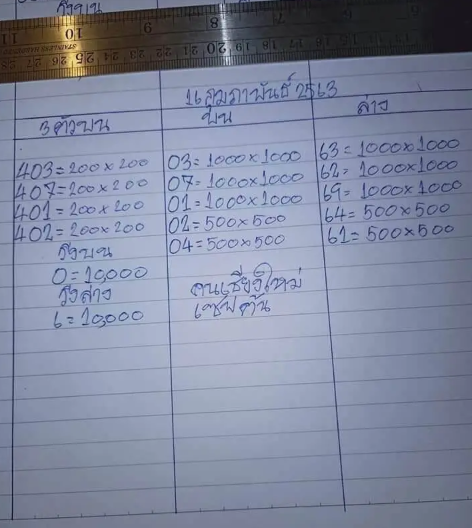 วิ่งบน
11 10 9 8 7 6
STAINLESS
28 27 26 25 24 23 22 21 20 19 18 17 16
16 กุมภาพันธ์ 2563
3 ตัวบน
บน
ล่าง
403=200×200
407=200×200
401=200×200
402=200×200
วิ่งบน
0=10,000
วิ่งล่าง
6=10,000
03=1000×1000
07=1000×1000
01=1000×1000
02=500×500
04=500×500
คนเชียงใหม่
เซฟคืน
63=1000×1000
62=1000×1000
69=1000×1000
64=500×500
61=500×500